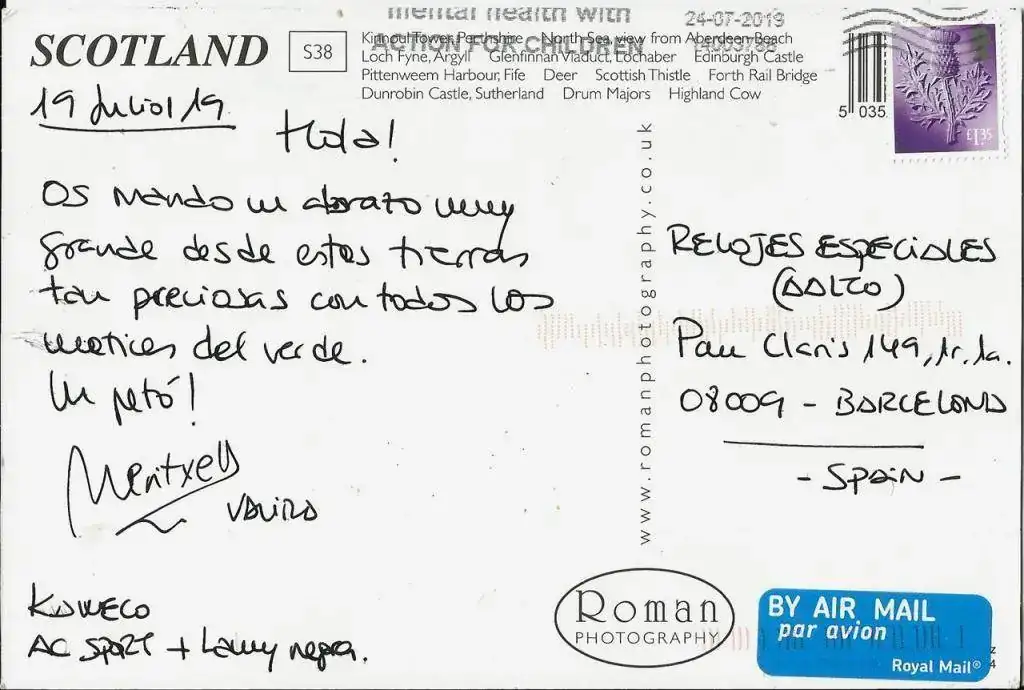 mental health with
ACTION FOR CHILDREN
24-07-2019
SCOTLAND
S38
Kinnoul Tower, Perthshire North Sea, view from Aberdeen Beach
Loch Fyne, Argyll Glenfinnan Viaduct, Lochaber Edinburgh Castle
Pittenweem Harbour, Fife Deer Scottish Thistle Forth Rail Bridge
Dunrobin Castle, Sutherland Drum Majors Highland Cow
5 035
£1.35
19 Juliol 19
Hola!
Os mando un abrazo muy
grande desde estas tierras
tan preciosas con todos los
matices del verde.
Un petó!
Meritxell
KAWECO
AC SPORT + Lamy negra.
www.romanphotography.co.uk
RELOJES ESPECIALES
Pau Claris 149, 1r. 1a.
08009 - BARCELONA
- SPAIN -
Roman
PHOTOGRAPHY
BY AIR MAIL
par avion
Royal Mail®